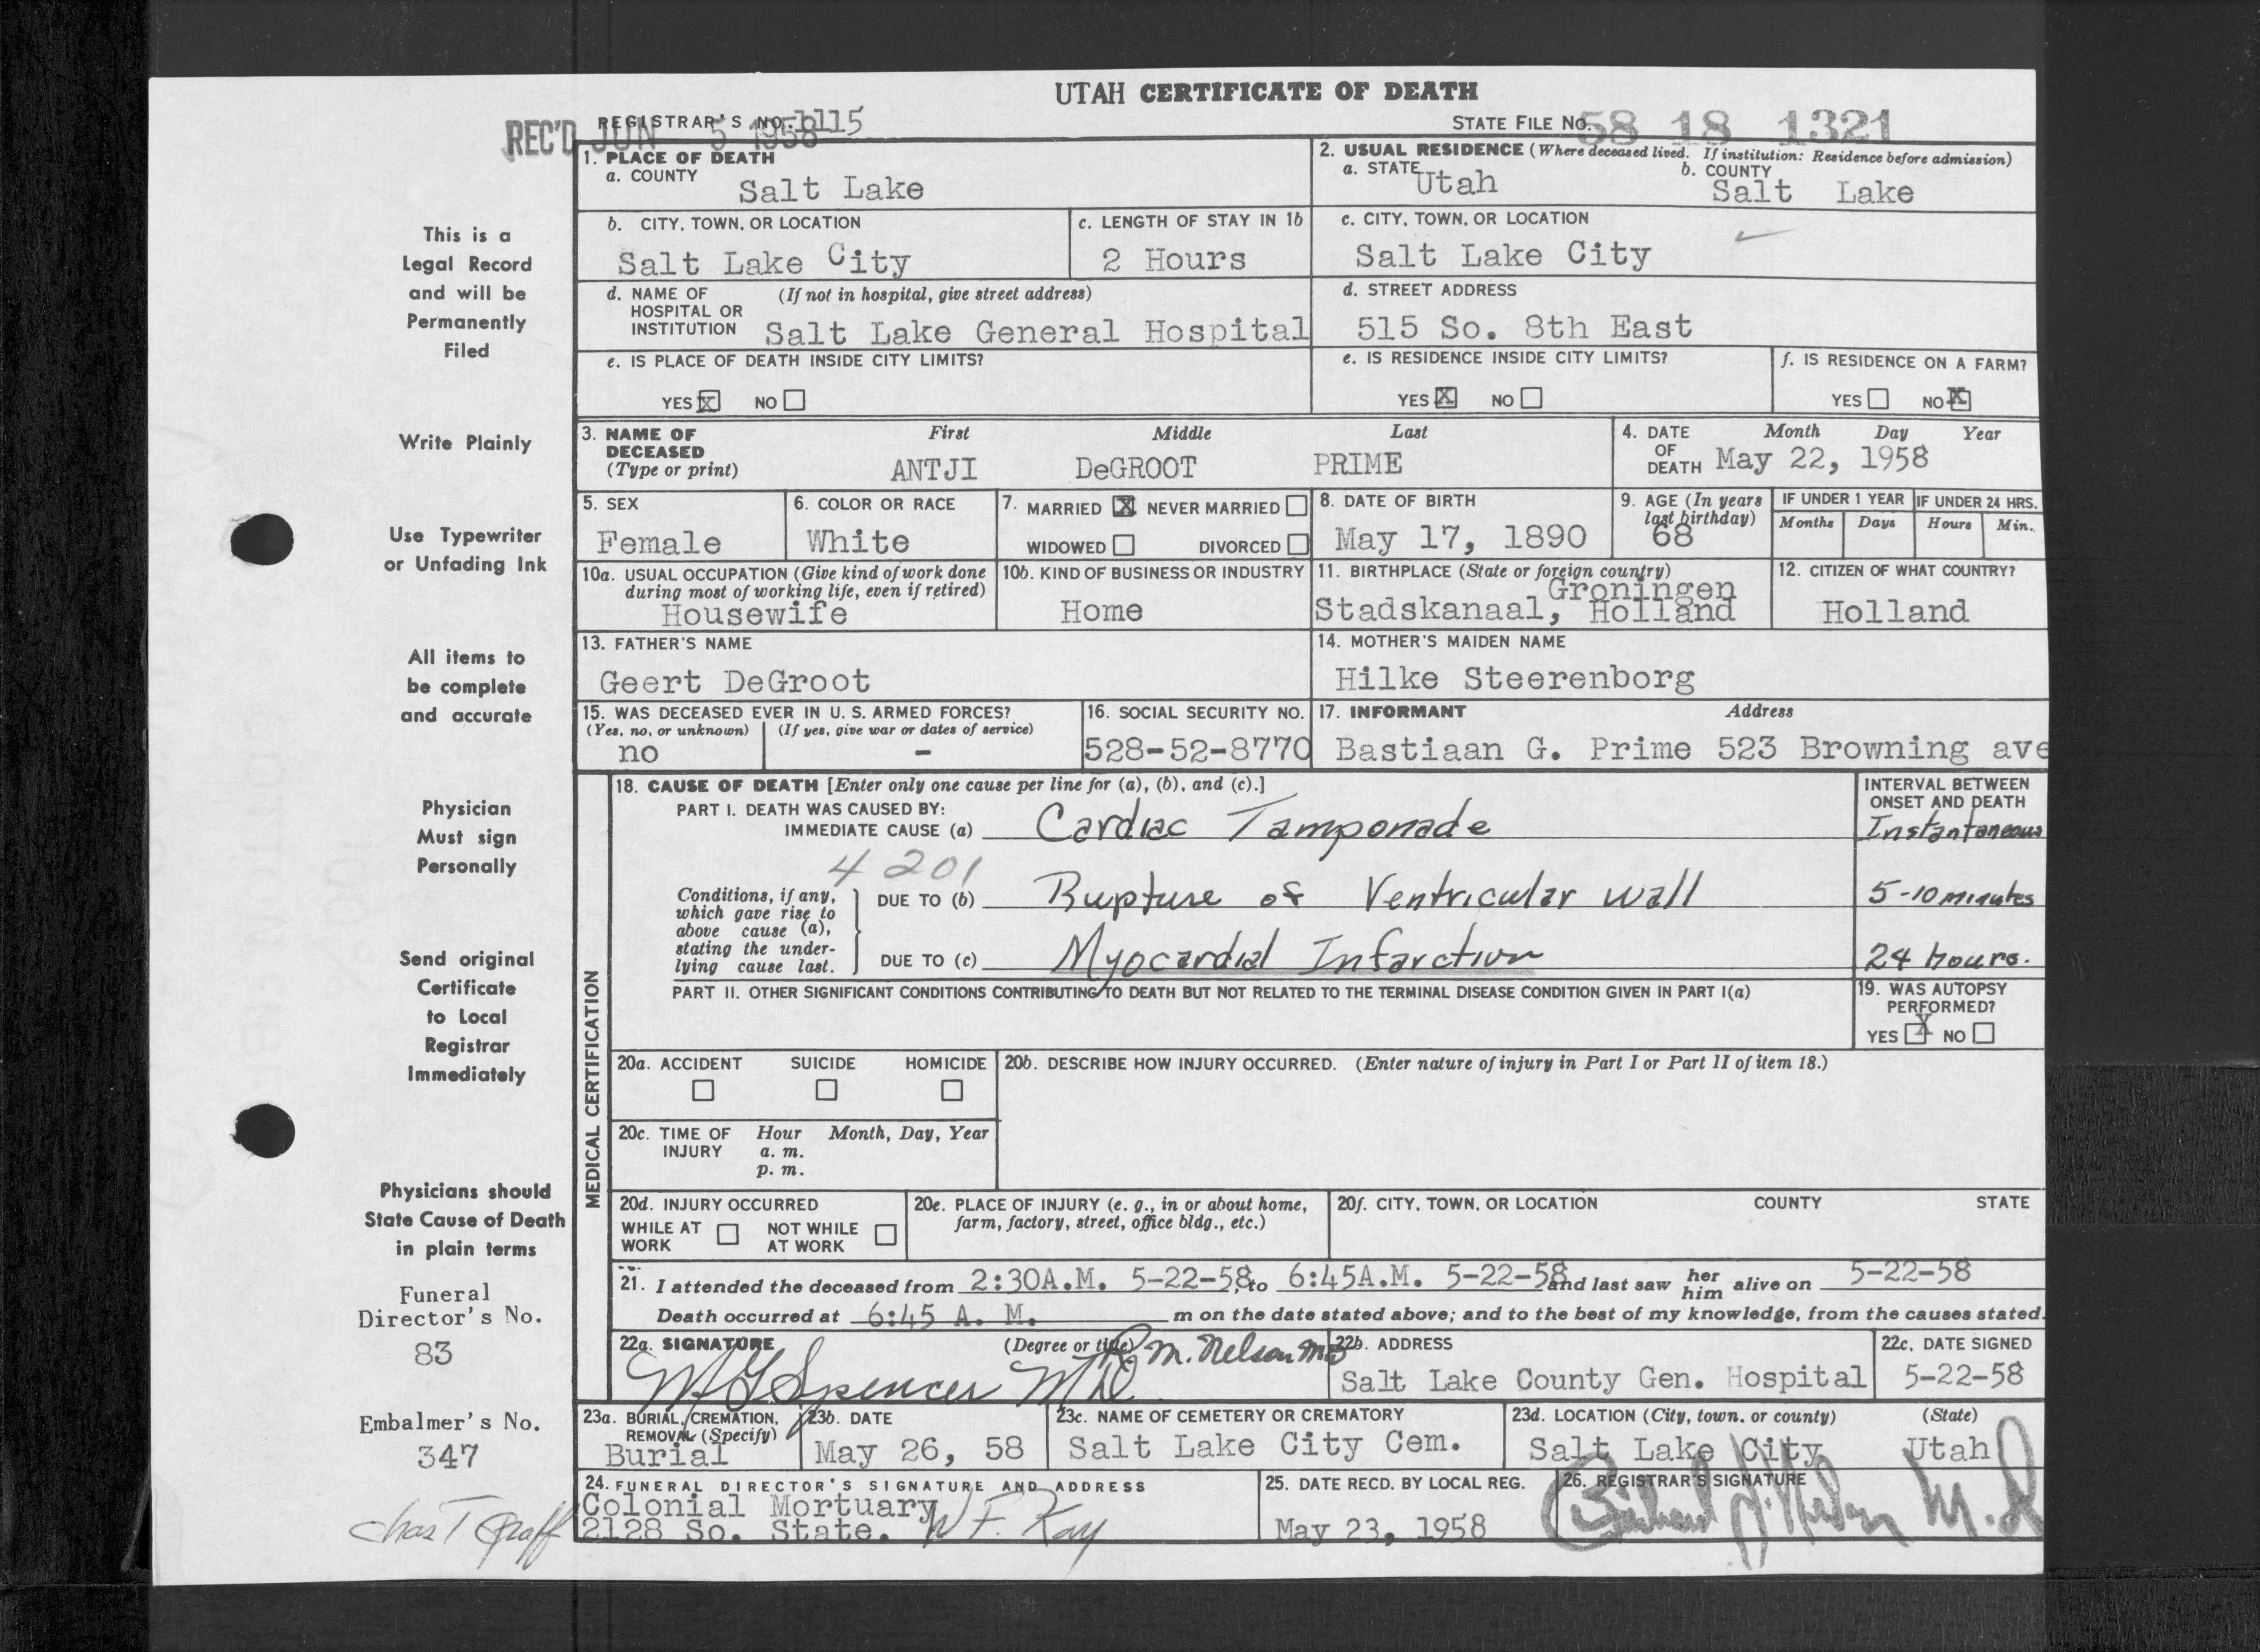 UTAH CERTIFICATE OF DEATH
REGISTRAR'S NO. 1115
REC'D JUN 5 1958
STATE FILE No. 58 18 1321
1. PLACE OF DEATH
a. COUNTY
Salt Lake
2. USUAL RESIDENCE (Where deceased lived. If institution: Residence before admission)
a. STATE Utah
b. COUNTY
Salt Lake
b. CITY, TOWN, OR LOCATION
Salt Lake City
c. LENGTH OF STAY IN 1b
2 Hours
c. CITY, TOWN, OR LOCATION
Salt Lake City
d. NAME OF (If not in hospital, give street address)
HOSPITAL OR
INSTITUTION Salt Lake General Hospital
d. STREET ADDRESS
515 So. 8th East
e. IS PLACE OF DEATH INSIDE CITY LIMITS?
YES X NO
e. IS RESIDENCE INSIDE CITY LIMITS?
YES X NO
f. IS RESIDENCE ON A FARM?
YES NO X
3. NAME OF First Middle Last
DECEASED
(Type or print) ANTJI DeGROOT PRIME
4. DATE Month Day Year
OF
DEATH May 22, 1958
5. SEX
Female
6. COLOR OR RACE
White
7. MARRIED X NEVER MARRIED
WIDOWED DIVORCED
8. DATE OF BIRTH
May 17, 1890
9. AGE (In years
last birthday)
68
IF UNDER 1 YEAR
Months Days
IF UNDER 24 HRS.
Hours Min.
10a. USUAL OCCUPATION (Give kind of work done
during most of working life, even if retired)
Housewife
10b. KIND OF BUSINESS OR INDUSTRY
Home
11. BIRTHPLACE (State or foreign country)
Groningen
Stadskanaal, Holland
12. CITIZEN OF WHAT COUNTRY?
Holland
13. FATHER'S NAME
Geert DeGroot
14. MOTHER'S MAIDEN NAME
Hilke Steerenborg
15. WAS DECEASED EVER IN U. S. ARMED FORCES?
(Yes, no, or unknown) (If yes, give war or dates of service)
no -
16. SOCIAL SECURITY NO.
528-52-8770
17. INFORMANT Address
Bastiaan G. Prime 523 Browning ave
MEDICAL CERTIFICATION
18. CAUSE OF DEATH [Enter only one cause per line for (a), (b), and (c).]
PART I. DEATH WAS CAUSED BY:
IMMEDIATE CAUSE (a) Cardiac Tamponade
INTERVAL BETWEEN
ONSET AND DEATH
Instantaneous
4201
Conditions, if any,
which gave rise to
above cause (a),
stating the under-
lying cause last.
DUE TO (b) Rupture of Ventricular wall
5-10 minutes
DUE TO (c) Myocardial Infarction
24 hours.
PART II. OTHER SIGNIFICANT CONDITIONS CONTRIBUTING TO DEATH BUT NOT RELATED TO THE TERMINAL DISEASE CONDITION GIVEN IN PART I(a)
19. WAS AUTOPSY
PERFORMED?
YES X NO
20a. ACCIDENT SUICIDE HOMICIDE
20b. DESCRIBE HOW INJURY OCCURRED. (Enter nature of injury in Part I or Part II of item 18.)
20c. TIME OF Hour Month, Day, Year
INJURY a. m.
p. m.
20d. INJURY OCCURRED
WHILE AT NOT WHILE
WORK AT WORK
20e. PLACE OF INJURY (e. g., in or about home,
farm, factory, street, office bldg., etc.)
20f. CITY, TOWN, OR LOCATION COUNTY STATE
21. I attended the deceased from 2:30A.M. 5-22-58, to 6:45A.M. 5-22-58 and last saw her him alive on 5-22-58
Death occurred at 6:45 A. M. m on the date stated above; and to the best of my knowledge, from the causes stated.
22a. SIGNATURE (Degree or title) R M. Nelson MD
W G Spencer MD
22b. ADDRESS
Salt Lake County Gen. Hospital
22c. DATE SIGNED
5-22-58
23a. BURIAL, CREMATION,
REMOVAL (Specify)
Burial
23b. DATE
May 26, 58
23c. NAME OF CEMETERY OR CREMATORY
Salt Lake City Cem.
23d. LOCATION (City, town, or county) (State)
Salt Lake City Utah
24. FUNERAL DIRECTOR'S SIGNATURE AND ADDRESS
Colonial Mortuary
2128 So. State. W F. Kay
25. DATE RECD. BY LOCAL REG.
May 23, 1958
26. REGISTRAR'S SIGNATURE
M.D
This is a
Legal Record
and will be
Permanently
Filed
Write Plainly
Use Typewriter
or Unfading Ink
All items to
be complete
and accurate
Physician
Must sign
Personally
Send original
Certificate
to Local
Registrar
Immediately
Physicians should
State Cause of Death
in plain terms
Funeral
Director's No.
83
Embalmer's No.
347
Chas T